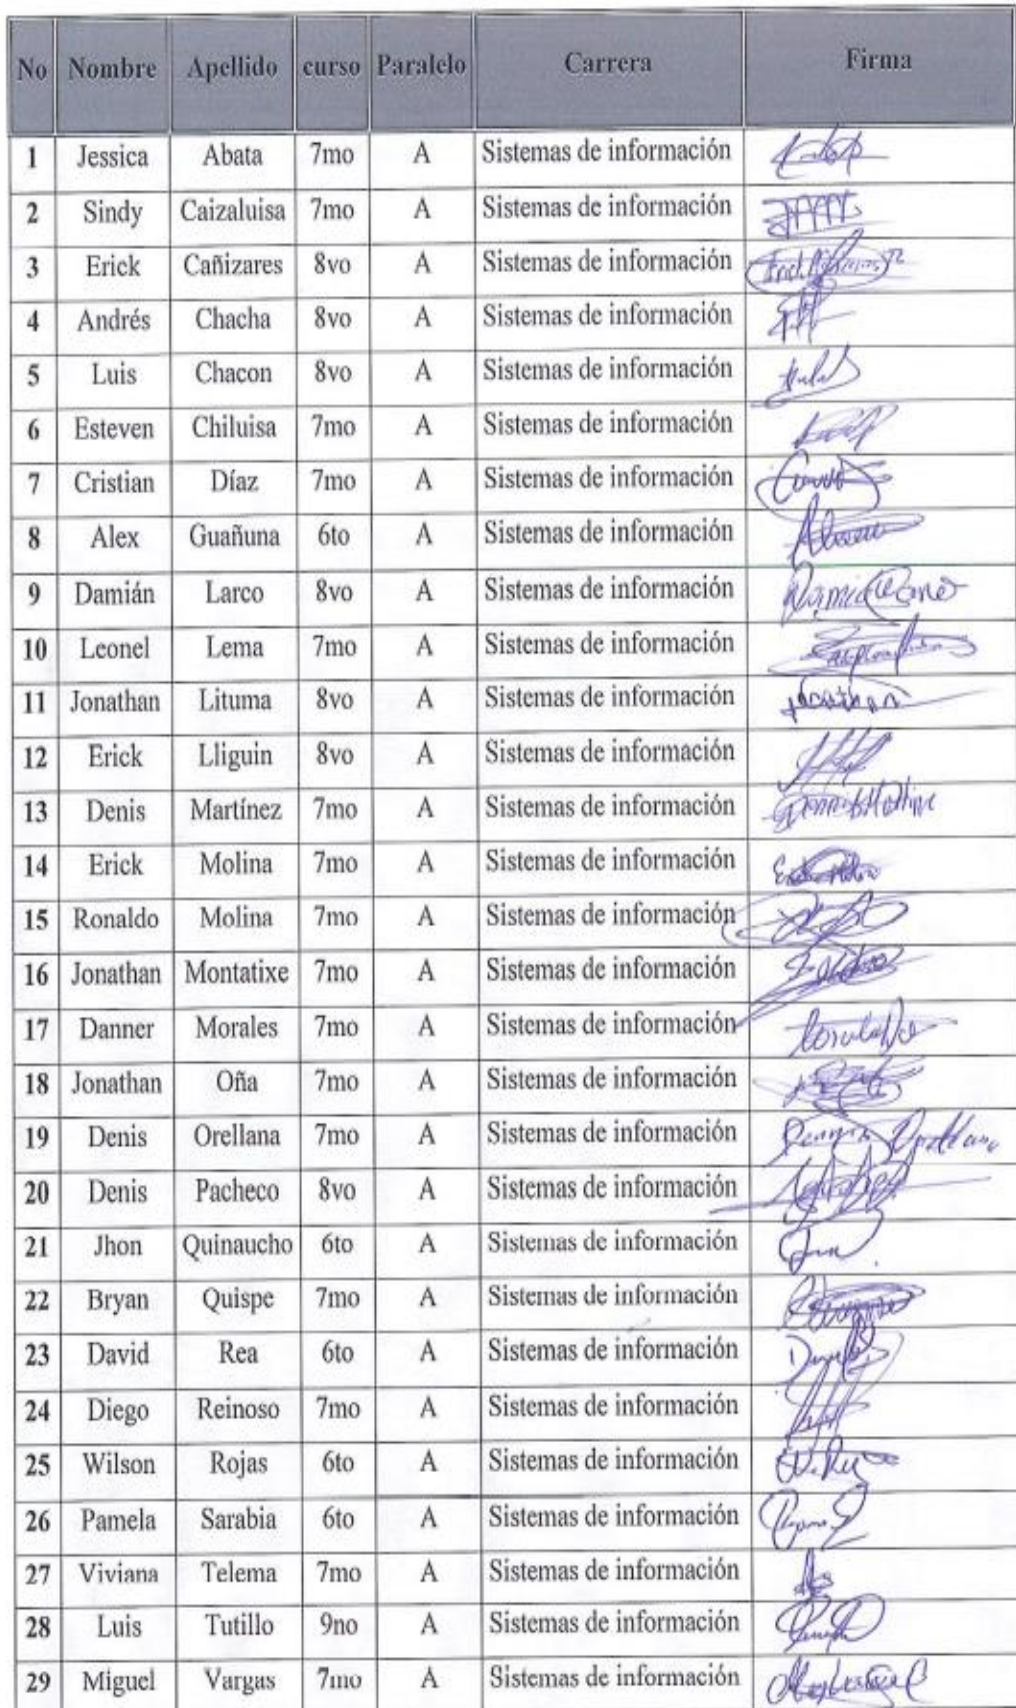 No Nombre Apellido curso Paralelo Carrera Firma
1 Jessica Abata 7mo A Sistemas de información
2 Sindy Caizaluisa 7mo A Sistemas de información
3 Erick Cañizares 8vo A Sistemas de información
4 Andrés Chacha 8vo A Sistemas de información
5 Luis Chacon 8vo A Sistemas de información
6 Esteven Chiluisa 7mo A Sistemas de información
7 Cristian Díaz 7mo A Sistemas de información
8 Alex Guañuna 6to A Sistemas de información
9 Damián Larco 8vo A Sistemas de información
10 Leonel Lema 7mo A Sistemas de información
11 Jonathan Lituma 8vo A Sistemas de información Jonathan
12 Erick Lliguin 8vo A Sistemas de información
13 Denis Martínez 7mo A Sistemas de información
14 Erick Molina 7mo A Sistemas de información
15 Ronaldo Molina 7mo A Sistemas de información
16 Jonathan Montatixe 7mo A Sistemas de información
17 Danner Morales 7mo A Sistemas de información
18 Jonathan Oña 7mo A Sistemas de información
19 Denis Orellana 7mo A Sistemas de información
20 Denis Pacheco 8vo A Sistemas de información
21 Jhon Quinaucho 6to A Sistemas de información
22 Bryan Quispe 7mo A Sistemas de información
23 David Rea 6to A Sistemas de información
24 Diego Reinoso 7mo A Sistemas de información
25 Wilson Rojas 6to A Sistemas de información
26 Pamela Sarabia 6to A Sistemas de información
27 Viviana Telema 7mo A Sistemas de información
28 Luis Tutillo 9no A Sistemas de información
29 Miguel Vargas 7mo A Sistemas de información